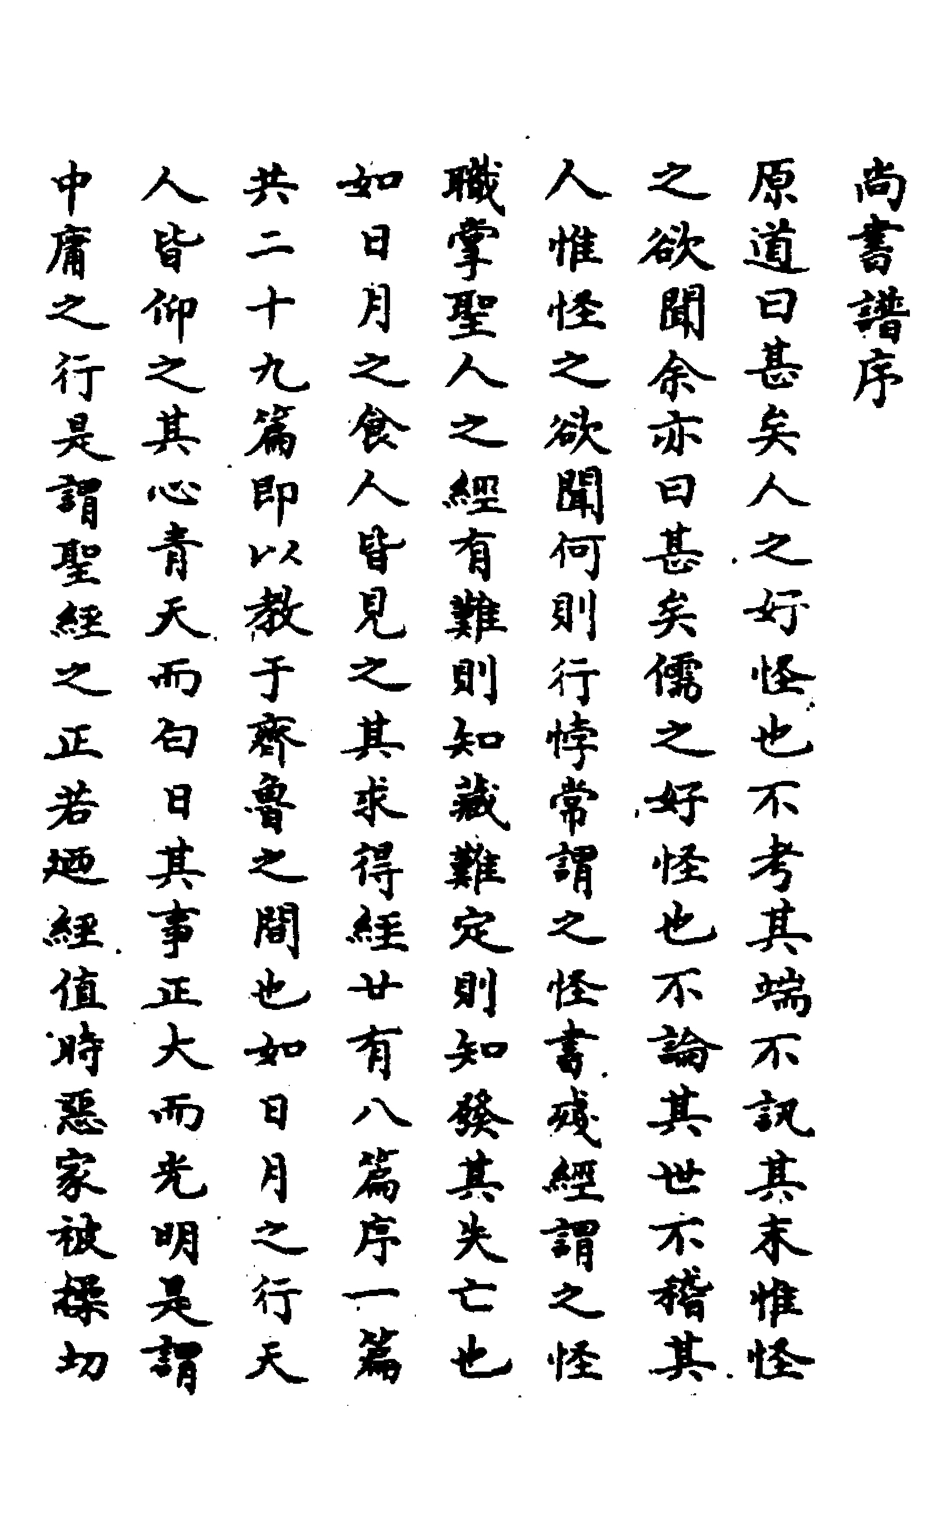 尚書譜序
原道曰甚矣人之好怪也不考其端不訊其末惟怪
之欲聞余亦曰甚矣儒之好怪也不論其世不稽其
人惟怪之欲聞何則行悖常謂之怪書殘經謂之怪
職掌聖人之經有難則知藏難定則知發其失亡也
如日月之食人皆見之其求得經廿有八篇序一篇
共二十九篇即以教于齊魯之間也如日月之行天
人皆仰之其心青天而白日其事正大而光明是謂
中庸之行是謂聖經之正若廼經值時惡家被操切